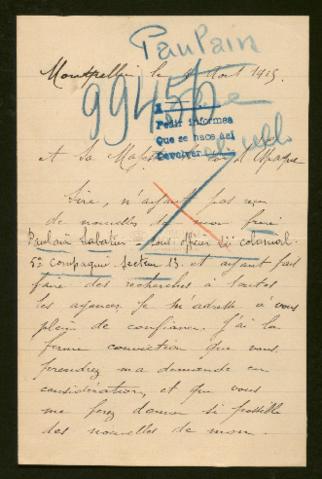 Paulain
Montpellier le Aout 1915.
99455
A
Pedir informes
Que se hace así
Devolver
et Sa Majesté Roi d'Espagne
Sire, n'ayant pas reçu
de nouvelles de mon frère
Paulain Sabatier sous officier colonial
5e Compagnie secteur 13. et ayant fait
faire des recherches à toutes
les agences. Je m'adresse à vous
plein de confiance. J'ai la
ferme conviction que vous
prendrez ma demande en
considération, et que vous
me ferez donner si possible
des nouvelles de mon